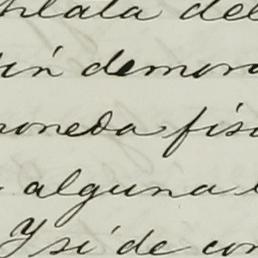 hlata del
sin demora
moneda fisc
alguna
Y si de con